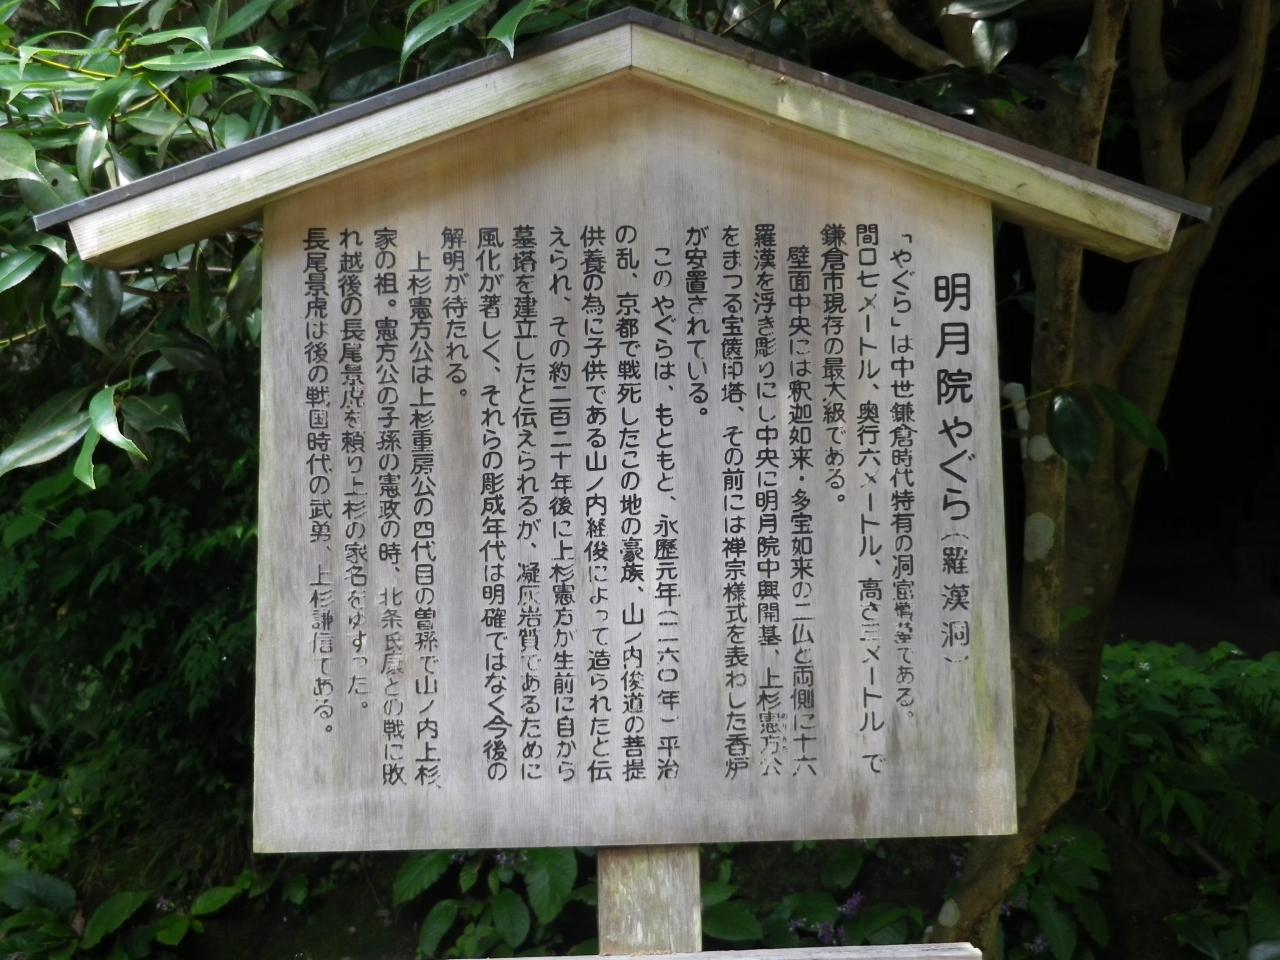 明月院やぐら(羅漢洞)
「やぐら」は中世鎌倉時代特有の洞窟墳墓である。
間口七メートル、奥行六メートル、高さ三メートルで
鎌倉市現存の最大級である。
壁面中央には釈迦如来・多宝如来の二仏と両側に十六
羅漢を浮き彫りにし中央に明月院中興開基、上杉憲方公
をまつる宝篋印塔、その前には禅宗様式を表わした香炉
が安置されている。
このやぐらは、もともと、永暦元年(一一六〇年)平治
の乱、京都で戦死したこの地の豪族、山ノ内俊道の菩提
供養の為に子供である山ノ内経俊によって造られたと伝
えられ、その約二百二十年後に上杉憲方が生前に自から
墓塔を建立したと伝えられるが、凝灰岩質であるために
風化が著しく、それらの彫成年代は明確ではなく今後の
解明が待たれる。
上杉憲方公は上杉重房公の四代目の曽孫で山ノ内上杉、
家の祖。憲方公の子孫の憲政の時、北条氏康との戦に敗
れ越後の長尾景虎を頼り上杉の家名をゆずった。
長尾景虎は後の戦国時代の武勇、上杉謙信である。